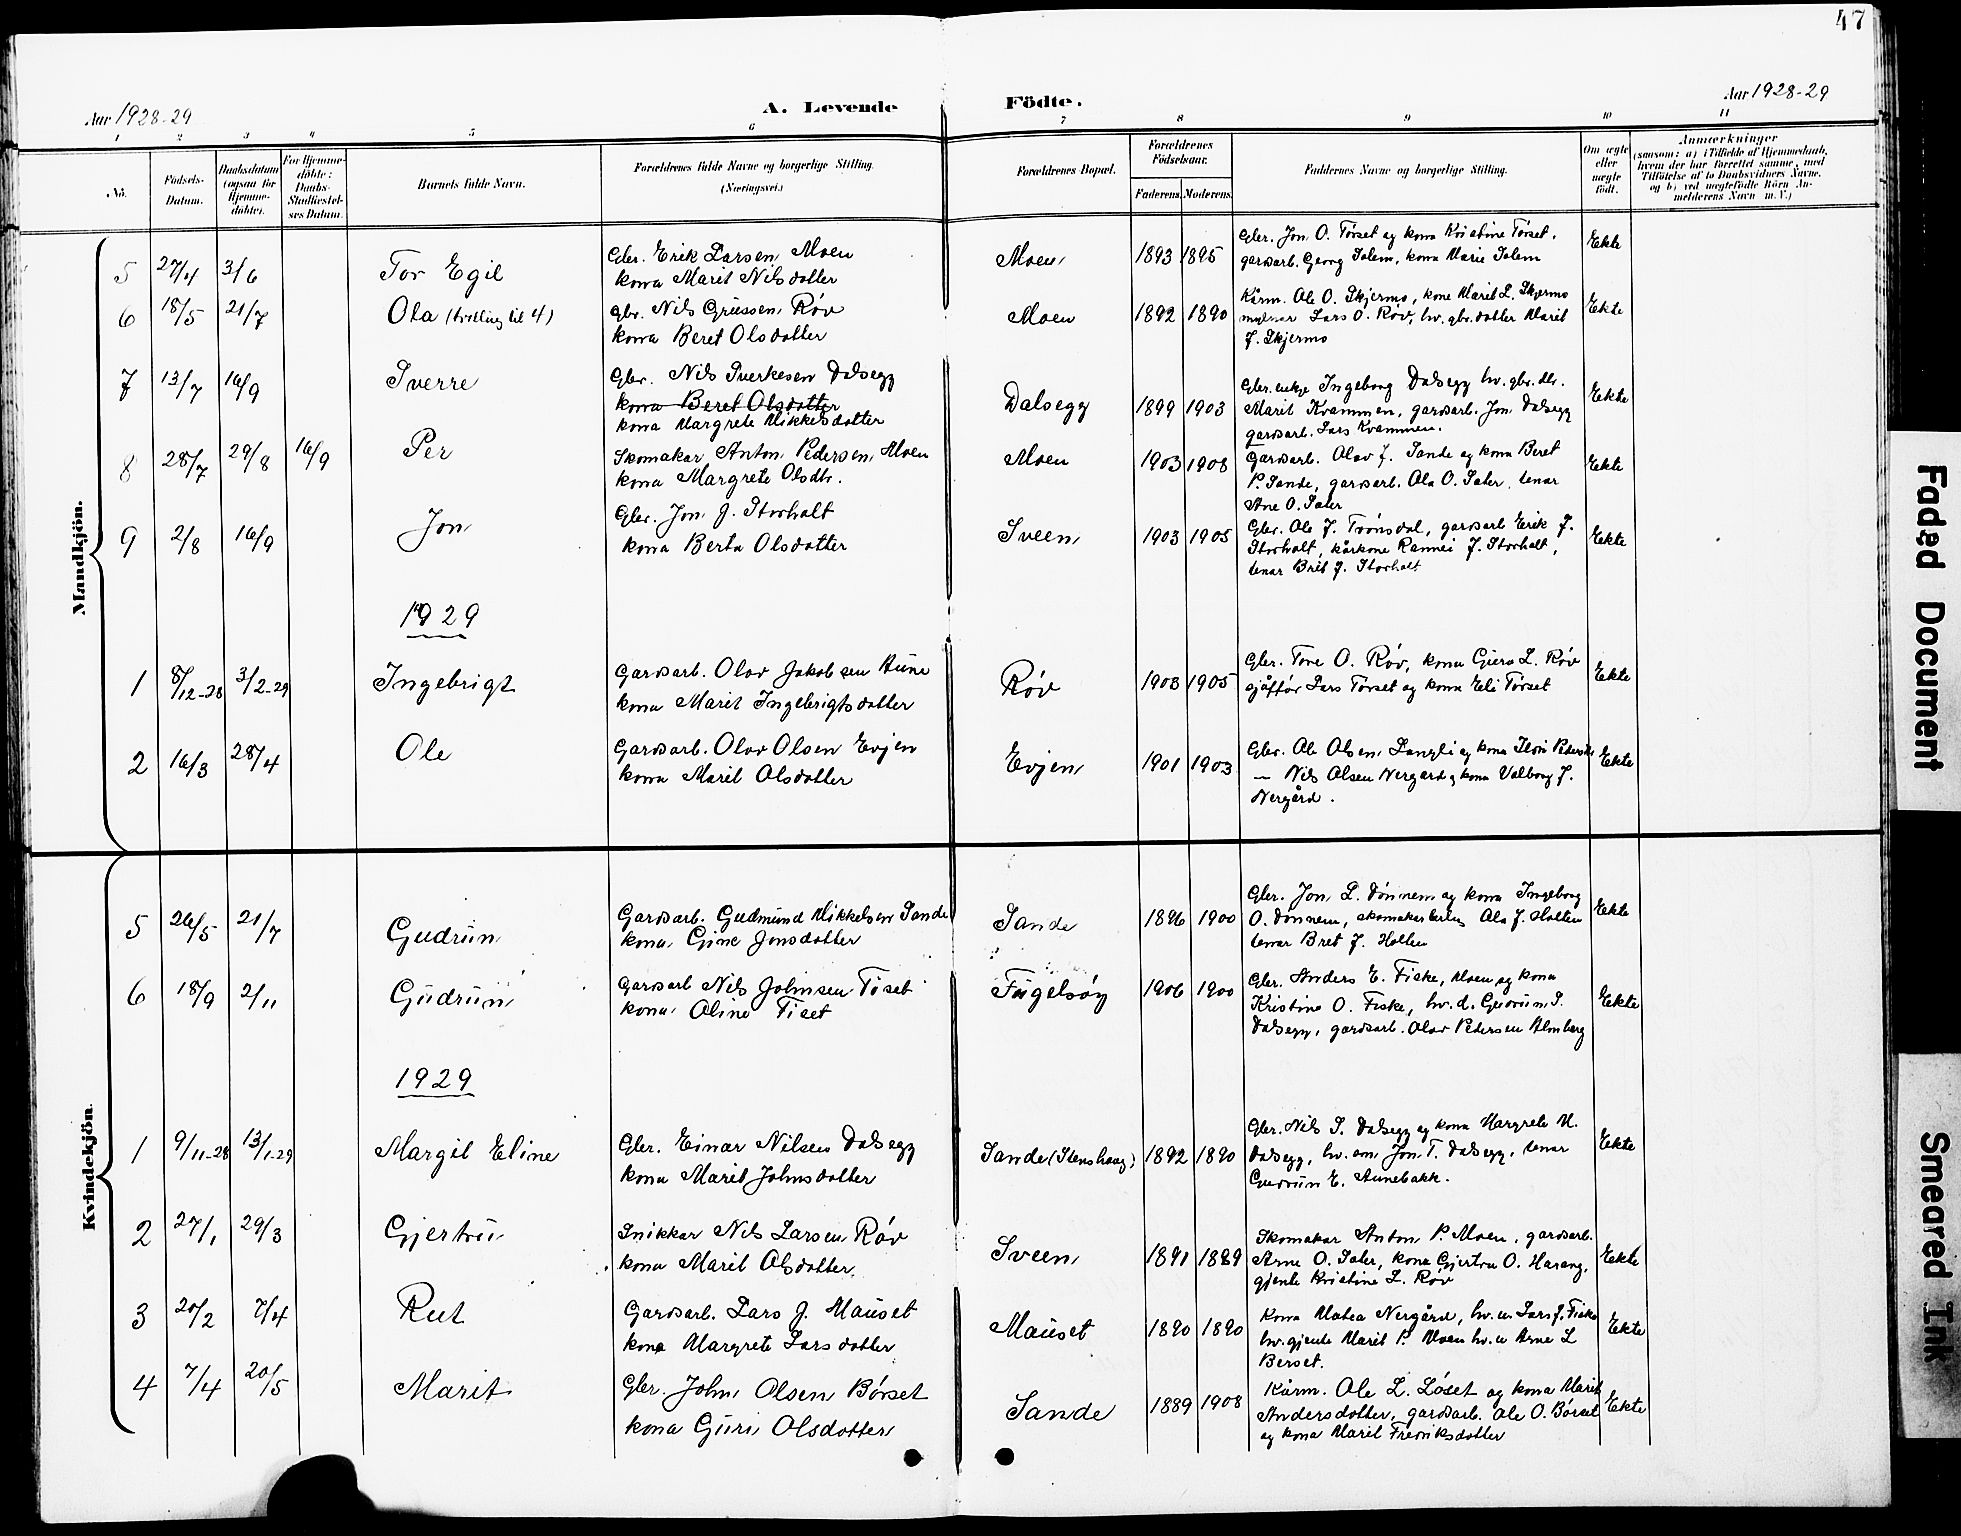 47
Aar 1928-29
A. Levende Födte.
Aar 1928-29
1 2 3 4 5 6 7 8 9 10 11
No.
Födsels-Datum.
Daabsdatum (ogsaa for Hjemme-döbte).
For Hjemme-döbte: Daabs-Stadfæstel-ses Datum.
Barnets fulde Navn.
Forældrenes fulde Navne og borgerlige Stilling. (Næringsvei.)
Forældrenes Bopæl.
Forældrenes Födselsaar.
Faderens. Moderens.
Faddernes Navne og borgerlige Stilling.
Om ægte eller uægte födt.
Anmærkninger
(saasom: a) i Tilfælde af Hjemmedaab, hvem der har forrettet samme, med Tilföielse af to Daabsvidners Navne, og b) ved uægtefödte Börn An-melderens Navn m. V.)
Mandkjön.
5 27/4 3/6 Tor Egil
Gbr. Erik Larsen Moen
kona Marit Nilsdotter
Moen 1893 1895
Gbr. Jon O. Tørset og kona Kristine Tørset,
gardarb. Georg Solem, kona Marie Solem
Ekte
6 18/5 21/7 Ola (tvilling til 4)
gbr. Nils Gutessen Røv
kona Beret Olsdotter
Moen 1892 1890
Kårm. Ole O. Skjermo, kone Marit L. Skjermo
Lars O. Røv, hv. gbr.dotter Marit
J. Skjermo
Ekte
7 13/7 16/9 Sverre
Gbr. Nils Sverkesen Dalsegg
kona Beret Olsdotter
kona Margrete Mikkelsdotter
Dalsegg 1899 1903
Gbr. enkje Ingeborg Dalsegg hv. gbr. dtr.
Marit Kvammen, gardsarb. Jon Dalsegg
gardsarb. Lars Kvammen.
Ekte
8 28/7 29/8 16/9 Per
Skomakar Anton Pedersen Moen
kona Margrete Olsdtr.
Moen 1903 1908
Gardsarb. Olav J. Sande og kona Beret
P. Sande, gardsarb. Ola O. Sæter, tenar
Ane O. Sæter
Ekte
9 2/8 16/9 Jon
Gbr. Jon J. Storholt
kona Berta Olsdotter
Sveen 1903 1905
Gbr. Ole J. Trønsdal, gardsarb Erik J.
Storholt, kårkone Rannei J. Storholt,
tenar Brit J. Storholt
Ekte
1929
1 8/12-28 3/2-29 Ingebrigt
Gardsarb. Olav Jakobsen Aune
kona Marit Ingebrigtsdotter
Røv 1903 1905
Gbr. Tore O. Røv, kona Guro L. Røv
sjåfför Lars Tørset og kona Eli Tørset
Ekte
2 16/3 28/4 Ole
Gardsarb. Olav Olsen Evjen
kona Marit Olsdotter
Evjen 1901 1903
Gbr. Ole Olsen Langli og kona
— Nils Olsen Nergard og kona Valborg J.
Nergård.
Ekte
Kvindekjön.
5 26/5 21/7 Gudrun
Gardsarb. Gudmund Mikkelsen Sande
kona Gine Jonsdotter
Sande 1896 1900
Gbr. Jon L. Dønnem og kona Ingeborg
O. Dønnem, skomakar Ola J. Holten
tenar Bret J. Holten
Ekte
6 18/9 2/11 Gudrun
Gardsarb Nils Johnsen Tiset
kona Oline Tiset
Fugelsøy 1906 1900
Gbr. Anders E. Fiske, Moen og kona
Kristine O. Fiske, hv. d. Gudrun S.
Dalsegg, gardsarb. Olav Pedersen Almberg
Ekte
1929
1 9/11-28 13/1-29 Margit Eline
Gbr. Einar Nilsen Dalsegg
kona Marit Johnsdotter
Sande (Stenshaug) 1892 1890
Gbr. Nils S. Dalsegg og kona Margrete M.
Dalsegg, hv. em Jon T. Dalsegg, tenar
Gudrun E. Aunebakk.
Ekte
2 27/1 29/3 Gjertru
Snikkar Nils Larsen Røv
kona Marit Olsdotter
Sveen 1891 1889
Skomakar Anton P. Moen, gardsarb.
Arne O. Sæter, kona Gjertru O. Harang,
gjente Kristine L. Røv
Ekte
3 20/2 7/4 Rut
Gardsarb. Lars J. Mauset
kona Margrete Larsdotter
Mauset 1890 1890
Kona Matea Nergård, hv. u. Lars J. Fiske
hv. gjente Marit P. Moen hv. u Arne L
Berset.
Ekte
4 7/4 20/5 Marit
Gbr. John Olsen Børset
kona Guri Olsdotter
Sande 1889 1908
Kårm. Ole L. Løset og kona Marit
Andersdotter, gardsarb. Ole O. Børset
og kona Marit Fredriksdotter
Ekte
Faded Document
Smeared Ink